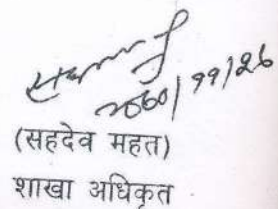 २०६०/११/२६
(सहदेव महत)
शाखा अधिकृत